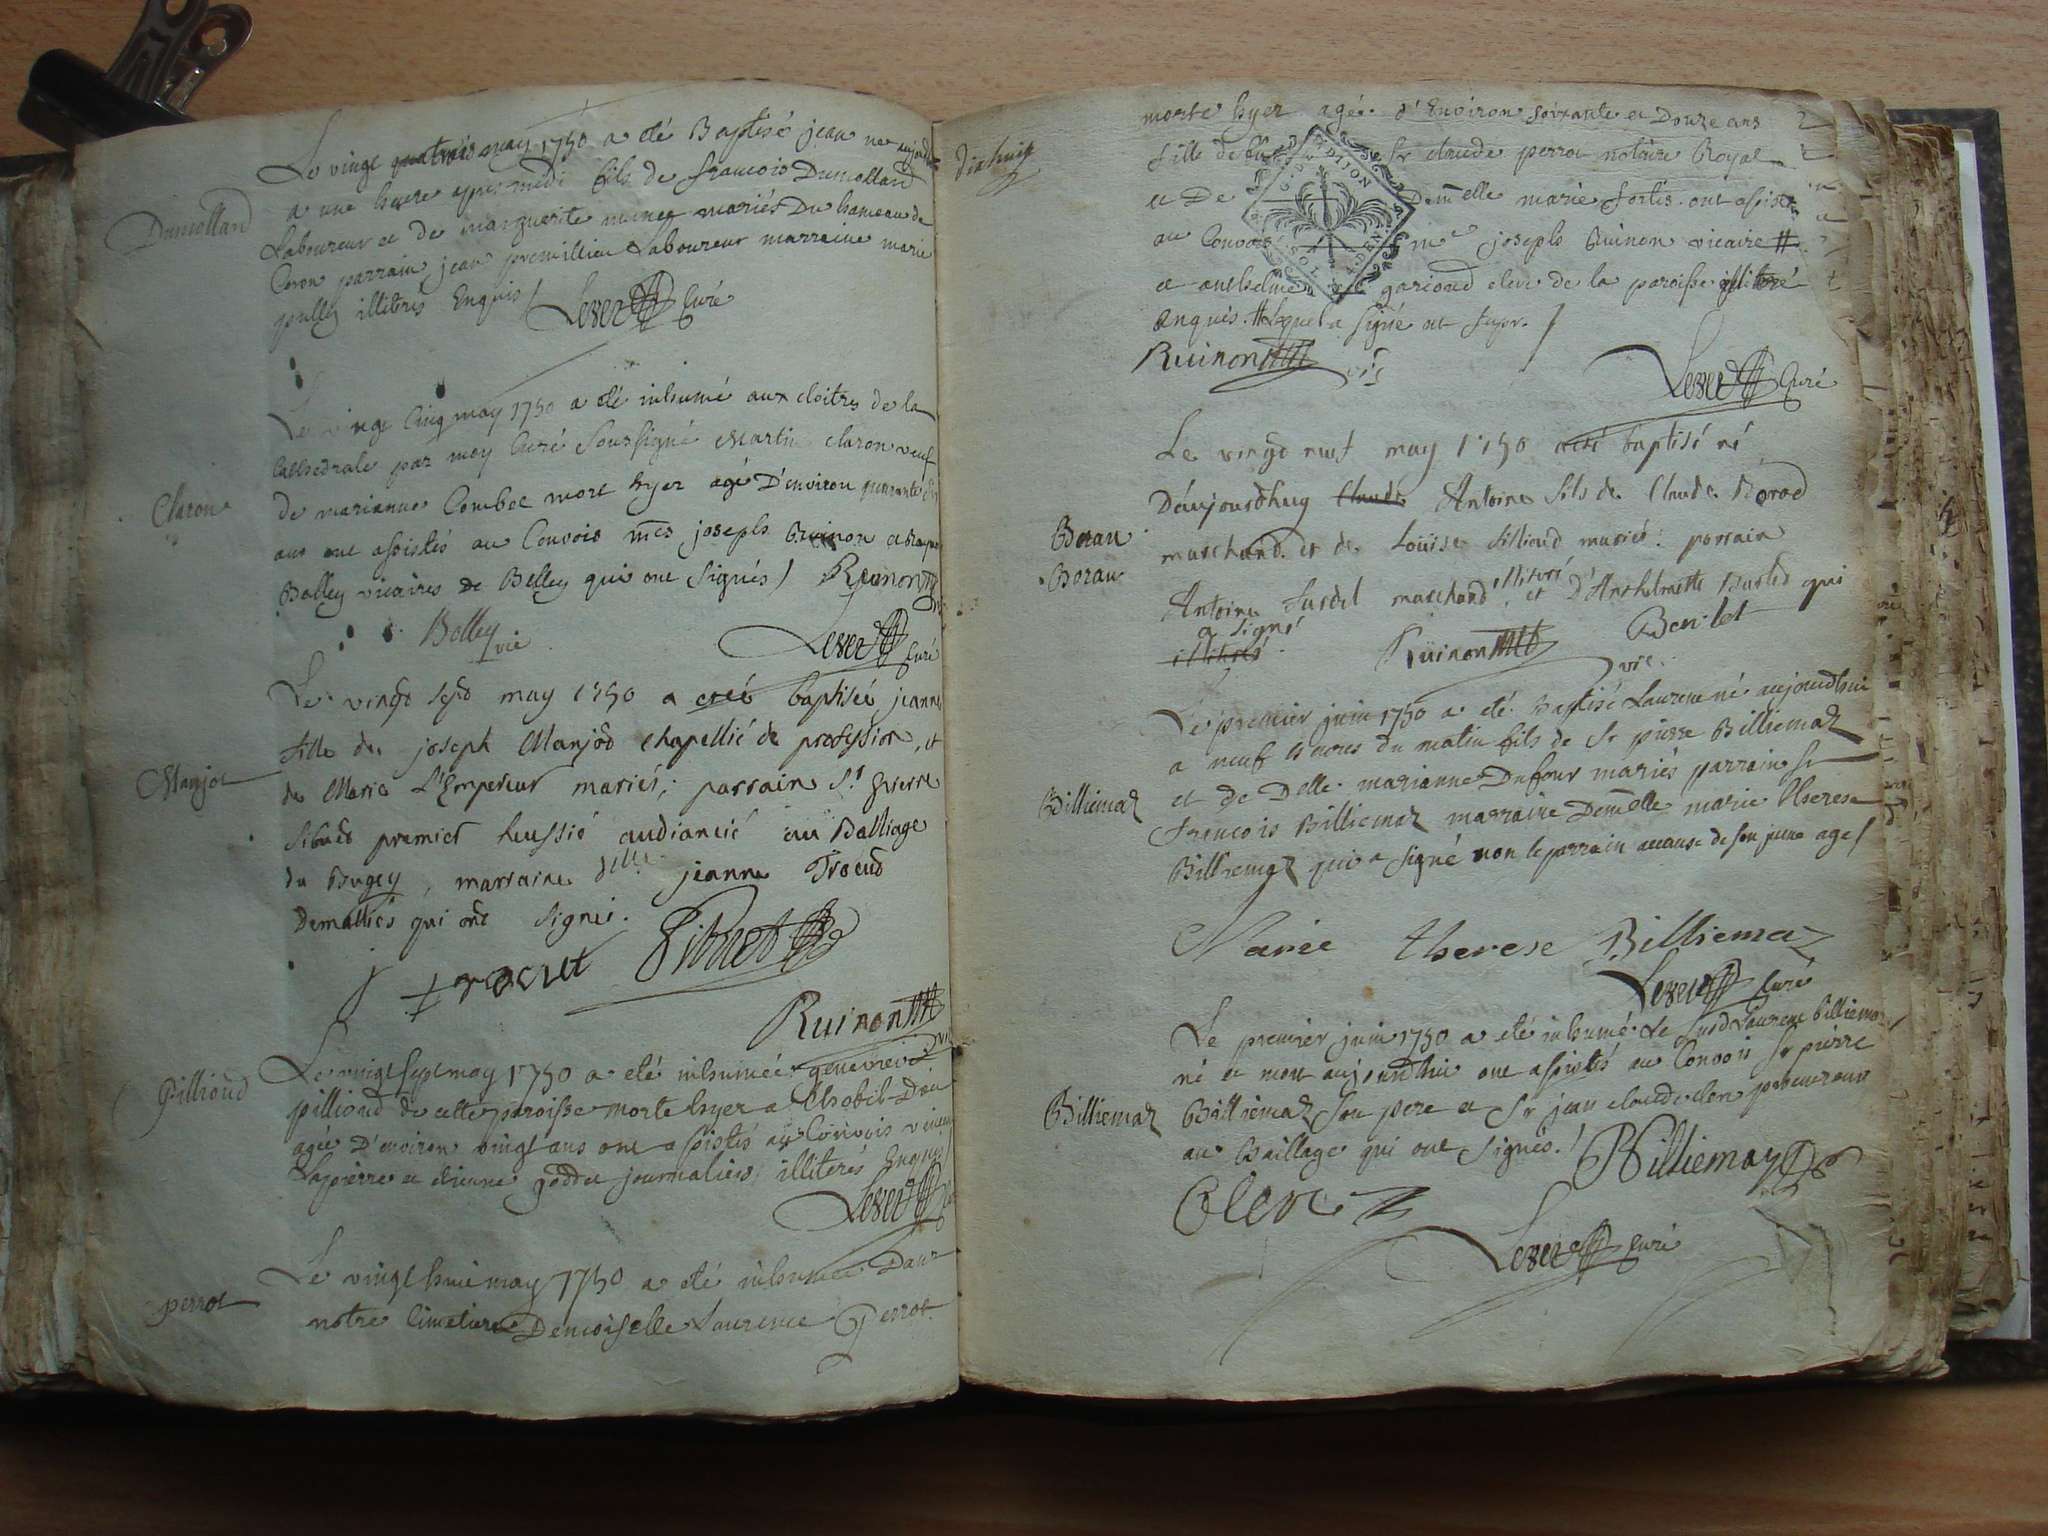 Dumollard
Le vingt quatre may 1750 a eté Baptisé jean né aujourd
a une heure apres midi fils de francois Dumollard
Laboureur et de marguerite mariés Du hameau de
Coron parrain jean premillieu Laboureur marraine marie
pullis illiterés Enquis /
Lever Curé
Claron
Le vingt Cinq may 1750 a eté inhumé aux cloitres de la
Cathedrale par moy Curé Soussigné Martin claron veuf
de marianne Combet mort hyer agé D'environ quarante
ans ont assistés au Convois mes joseph Ruinon et
Balley vicaires de Belley qui ont signés / Ruinon
Balley vic
Lever Curé
Manjot
Le vingt sept may 1750 a eté baptiseé jeanne
fille de joseph Manjod chapellié de profession, et
de Marie L'Empereur mariés; parrain Sr pierre
Sibued premier heussié audiancié au Balliage
du Bugey, marraine dlle jeanne Trocud
Demallies qui ont signés.
j trocut Sibuet
Ruinon vic
Pillioud
Le vingt sept may 1750 a eté inhumée genevieve
pillioud de cette paroisse morte hyer a
agée D'environ vingt ans ont assistés au Convois vincent
Lapierre et etienne goddet journaliers illiterés Enquis /
Lever
perrot
Le vingt huit may 1750 a eté inhumée Dans
notre Cimetiere Demoiselle Laurence Perrot
dixhuit
morte hyer agée d'Environ soixante et Douze ans
fille de feu Sr claude perrot notaire Royal
et De Demlle marie sortis ont assisté
au Convois me joseph Ruinon vicaire #
et anthelme garioud clerc de la paroisse illiteré
Enquis. # Lequel a signé
Ruinon vic
Lever Curé
Borau
Borau
Le vingt nuf may 1750 a eté baptisé né
D'aujourdhuy Claude Antoine fils de Claude Borod
marchand et de Loüise Silliod mariés: parrain
Antoine Surdel marchand illiteré, et D'Anthelmette Barlet qui
a signé
illiterés
Ruinon vic. Benilet
Billiemaz
Le premier juin 1750 a eté Baptisé Laurent né aujourdhui
a neuf heures du matin fils de Sr pierre Billiemaz
et de Delle marianne Dufour mariés parrain Sr
francois Billiemaz marraine Demlle marie therese
Billiemaz qui a signé non le parrain accause de son jeune age /
Marie therese Billiemaz
Lever Curé
Billiemaz
Le premier juin 1750 a eté inhumé Le susd Laurent billiemaz
né et mort aujourdhui ont assistés au Convois Sr pierre
Billiemaz son pere et Sr jean claude clerc procureur
au Baillage qui ont signés. /
Billiemaz
Clerc
Lever Curé